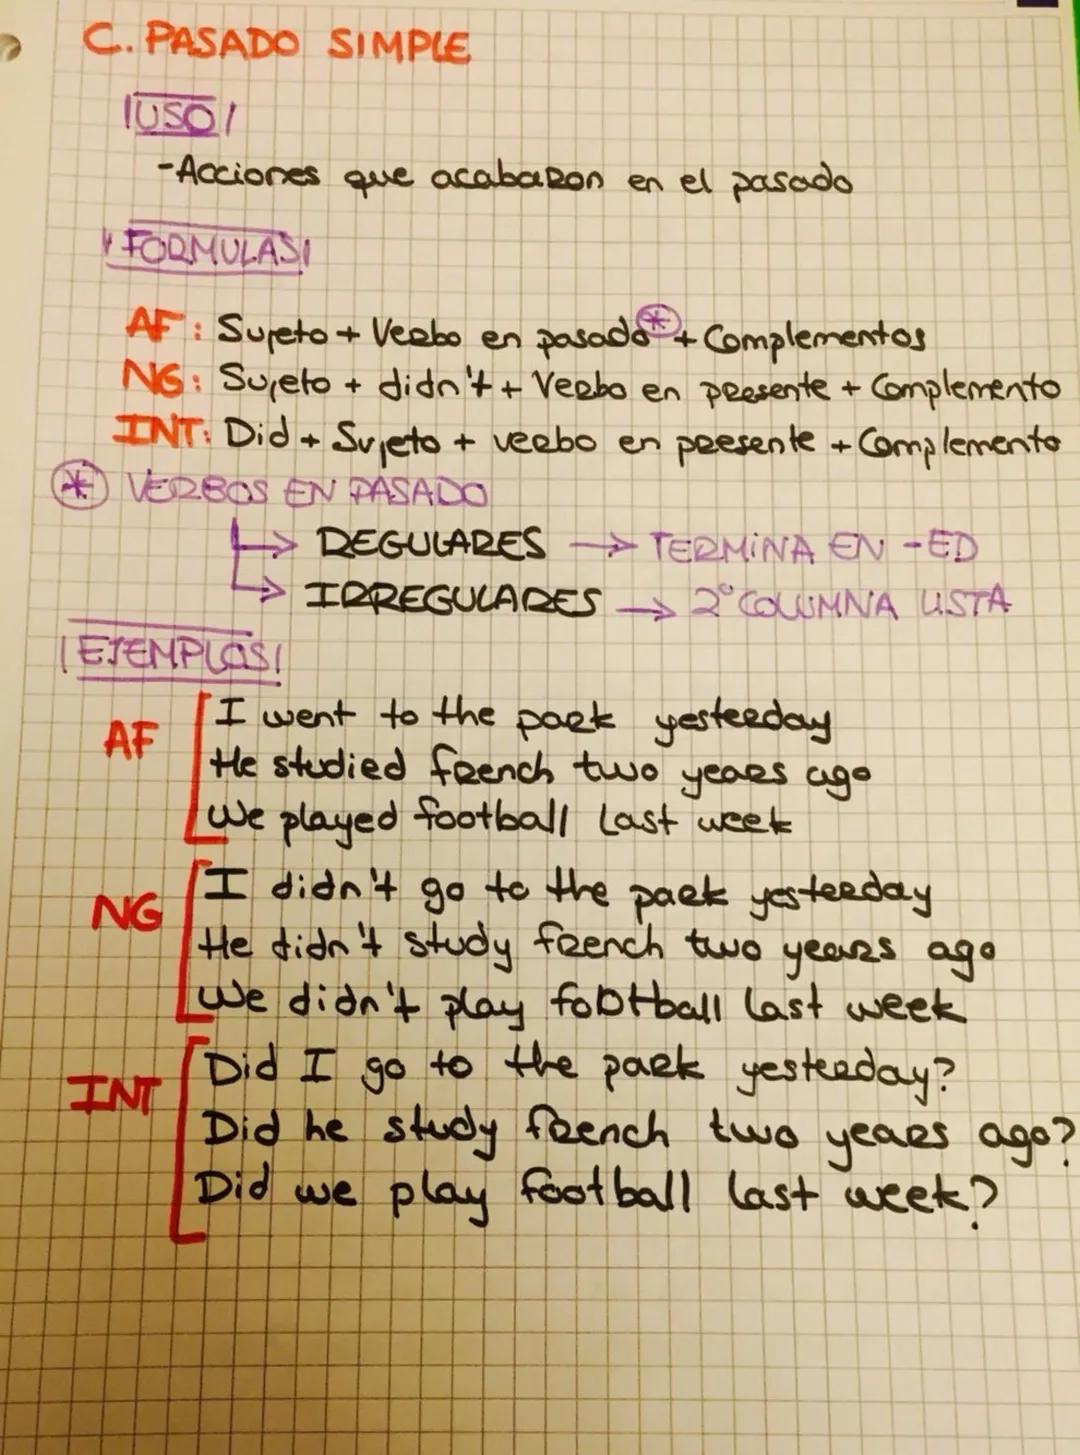 C. PASADO SIMPLE
USO
-Acciones que acabaron en el pasado
FORMULAS
AF: Sujeto + Verbo en pasado * + Complementos
NG: Sujeto + didn't + Verbo en presente + Complemento
INT: Did + Sujeto + verbo en presente + Complemento
* VERBOS EN PASADO
→ REGULARES → TERMINA EN -ED
→ IRREGULARES → 2° COLUMNA LISTA
EJEMPLOS
AF
I went to the park yesterday
He studied french two years ago
We played football last week
NG
I didn't go to the park yesterday
He didn't study french two years ago
We didn't play football last week
INT
Did I go to the park yesterday?
Did he study french two years ago?
Did we play football last week?